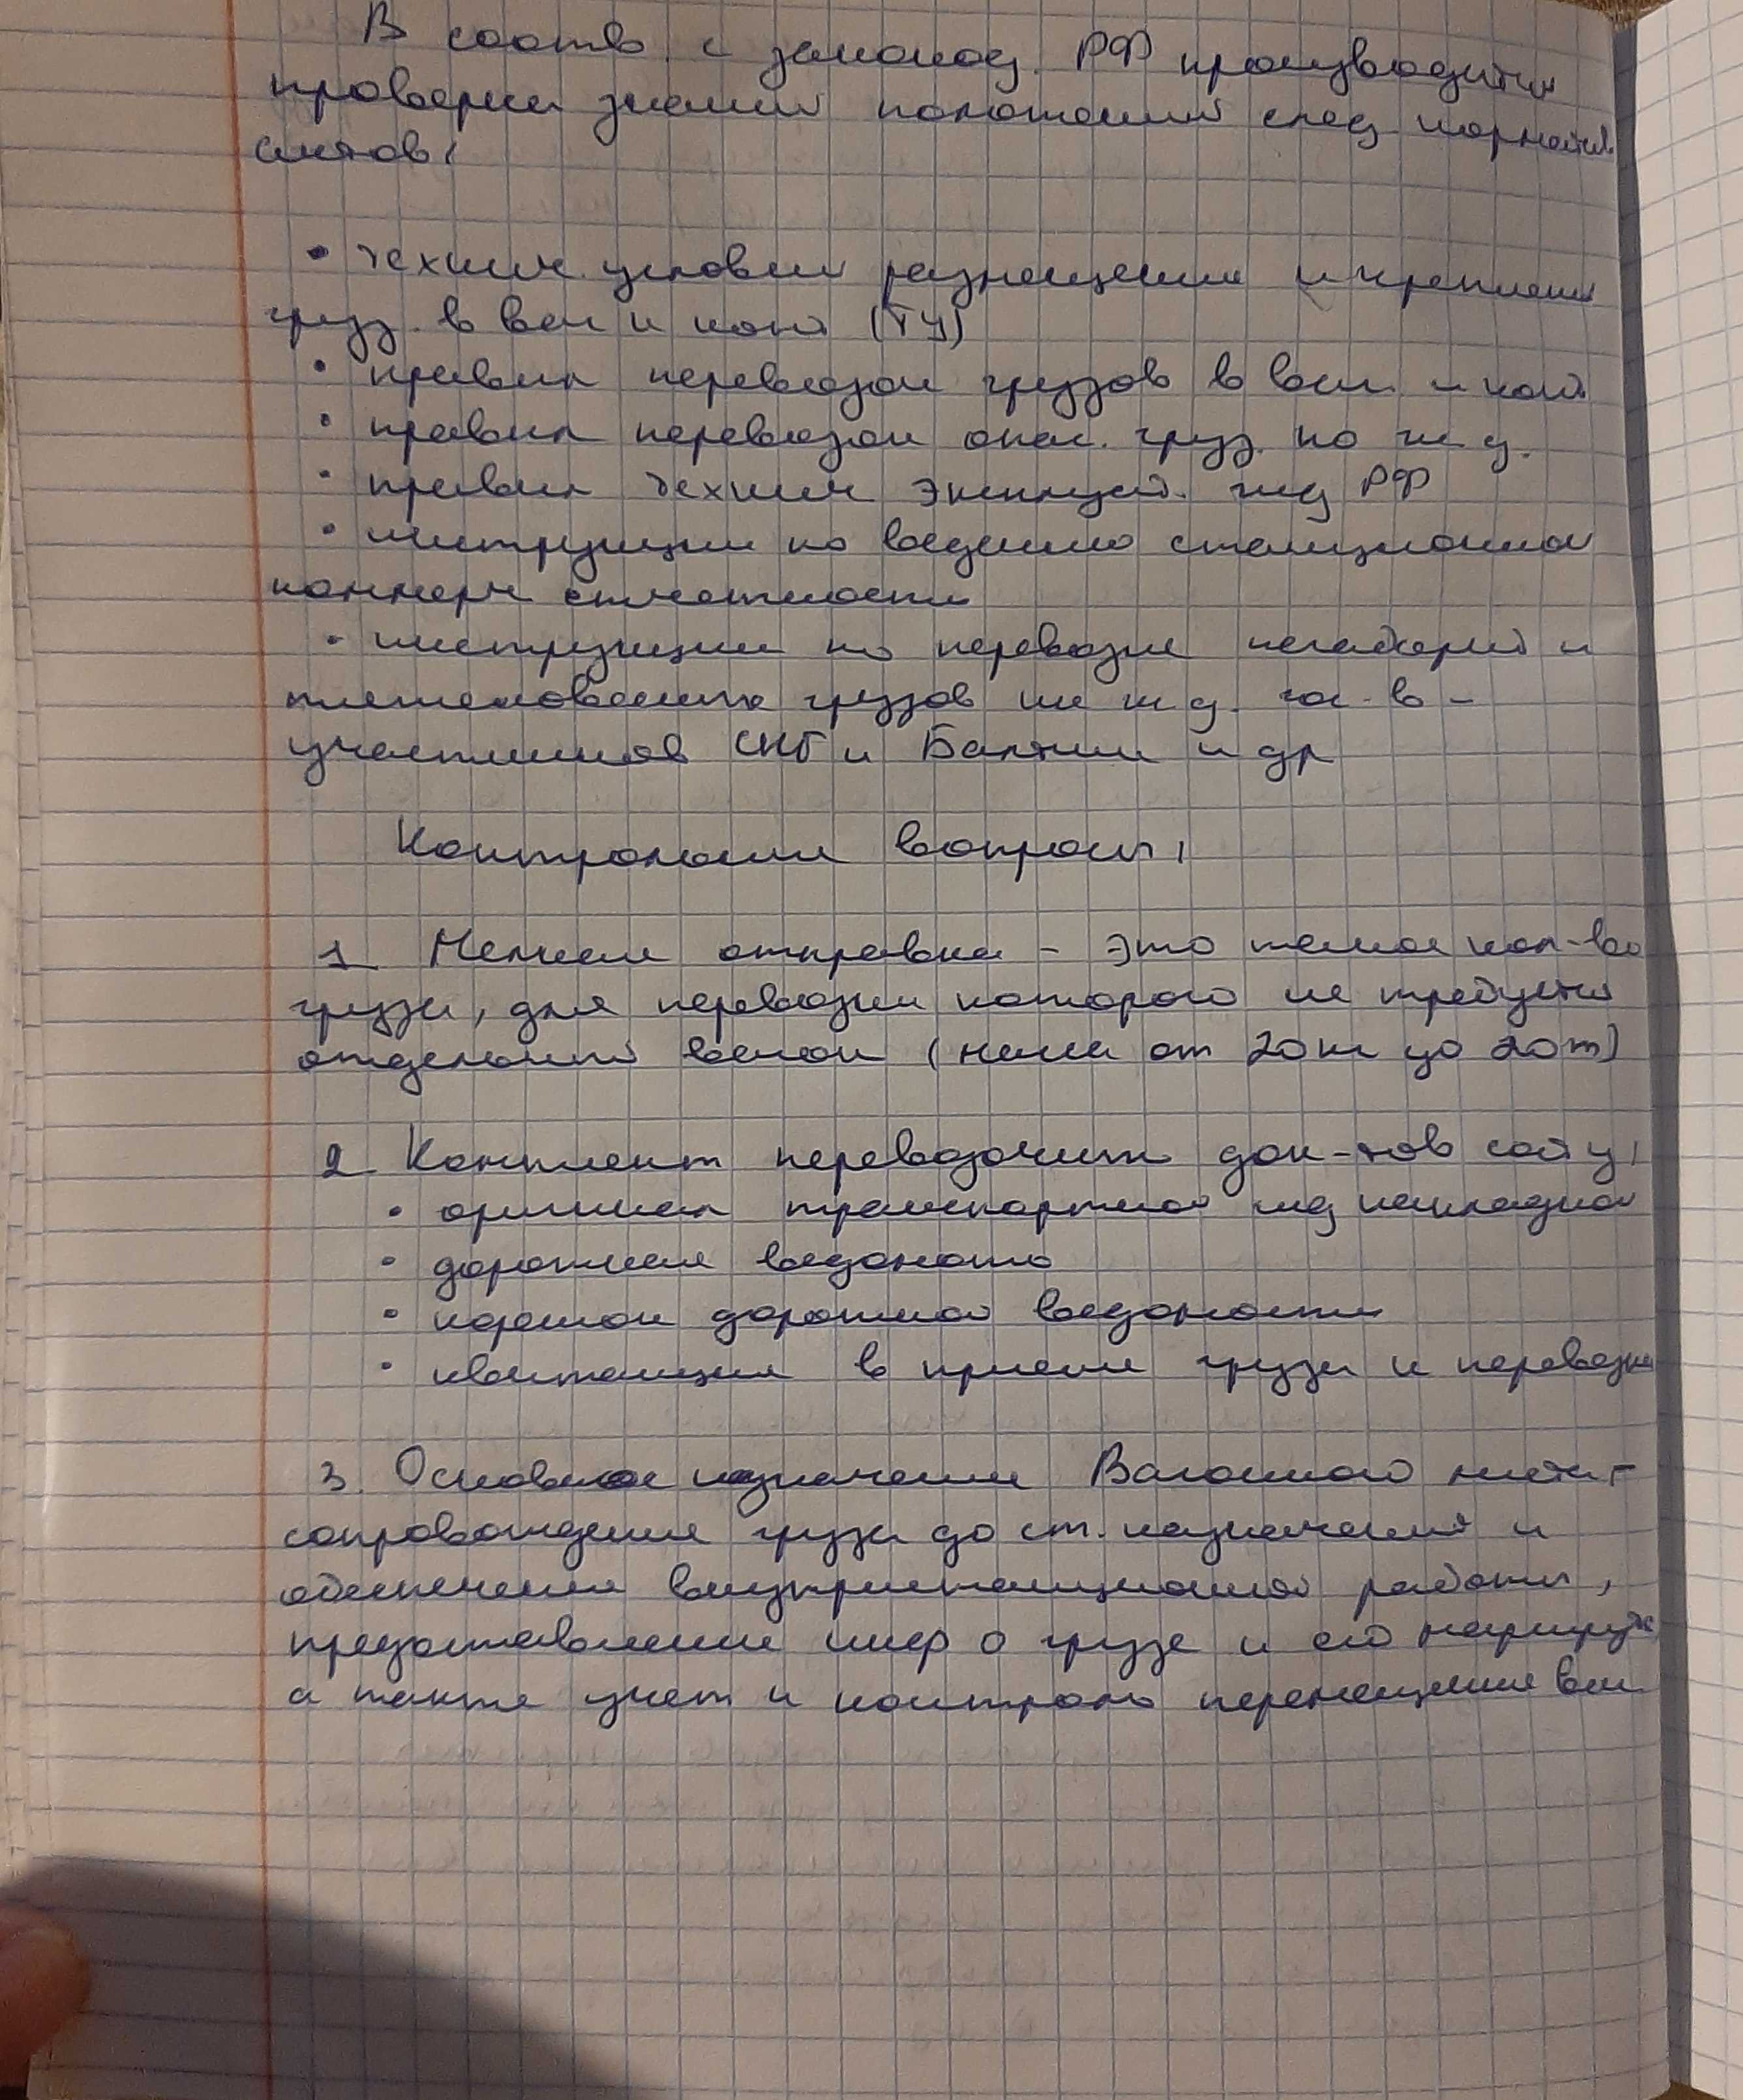 В соотв. с законод. РФ производится
проверка знаний положений след. норматив.
актов:
• технич. условия размещения и крепления
груз. в ваг и конт (ТУ)
• правил перевозок грузов в ваг. и конт
• правил перевозок опас. груз. по ж.д.
• правил технич эксплуат. жд РФ
• инструкции по ведению станционной
коммерч отчетности
• инструкции по перевозке негабарит и
тяжеловесных грузов на ж.д. гос-в-
участников СНГ и Балтии и др
Контрольные вопросы:
1. Мелкая отправка - это такое кол-во
груза, для перевозки которого не требуется
отдельный вагон (масса от 20кг до 20т)
2. Комплект перевозочных док-тов
• оригинал транспортной жд накладной
• дорожная ведомость
• корешок дорожной ведомости
• квитанция в приеме груза к перевозке
3. Основное назначение Вагонного листа-
сопровождение груза до ст. назначения и
обеспечения внутристанционной работы,
предоставление инф о грузе и его маршруте
а также учет и контроль перемещения ваг.